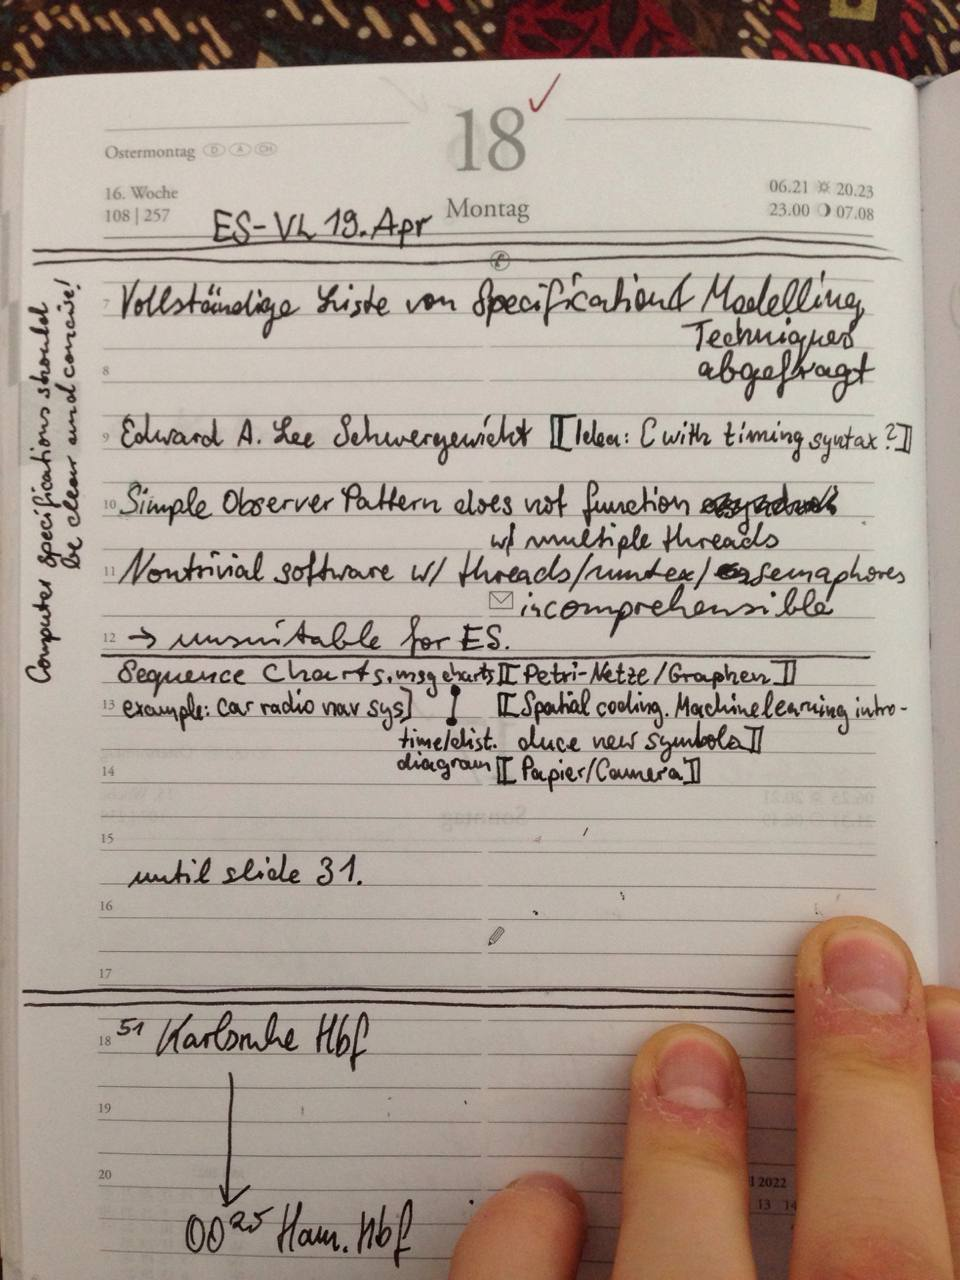 18
Ostermontag D A CH
16. Woche
108 | 257
Montag
06.21 20.23
23.00 07.08
ES-VL 19. Apr
Computer specifications should
be clear and concise!
7 Vollständige Liste von Specification/ Modelling
Techniques
8 abgefragt
9 Edward A. Lee Schwergewicht [[Idea: C with timing syntax?]]
10 Simple Observer Pattern does not function
w/ multiple threads
11 Nontrivial software w/ threads/mutex/semaphores
incomprehensible
12 → unsuitable for ES.
Sequence Charts, msg charts [[Petri-Netze/Graphen]]
13 example: car radio nav sys] [[Spatial coding. Machine learning intro-
time/dist. duce new symbols]]
14 diagram [[Papier/Camera]]
15
until slide 31.
16
17
18 51 Karlsruhe Hbf
19
20
00 25 Ham. Hbf
2022
13 14